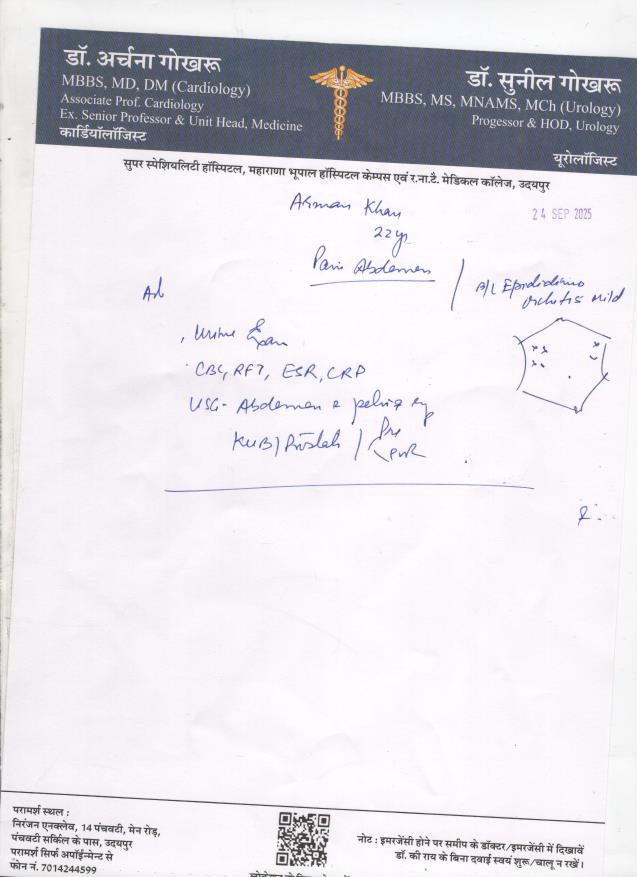 डॉ. अर्चना गोखरू
MBBS, MD, DM (Cardiology)
Associate Prof. Cardiology
Ex. Senior Professor & Unit Head, Medicine
कार्डियॉलॉजिस्ट
डॉ. सुनील गोखरू
MBBS, MS, MNAMS, MCh (Urology)
Progessor & HOD, Urology
यूरोलॉजिस्ट
सुपर स्पेशियलिटी हॉस्पिटल, महाराणा भूपाल हॉस्पिटल केम्पस एवं र.ना.टै. मेडिकल कॉलेज, उदयपुर
24 SEP 2025
Arman Khan
22 yr
Pain Abdomen
B/L Epididimo
orchitis mild
Adv
Urine Exam
CBC, RFT, ESR, CRP
USG - Abdomen & pelvis
KUB/Prostate / Pre
PVR
परामर्श स्थल :
निरंजन एनक्लेव, 14 पंचवटी, मेन रोड़,
पंचवटी सर्किल के पास, उदयपुर
परामर्श सिर्फ अपॉईन्मेन्ट से
फोन नं. 7014244599
नोट : इमरजेंसी होने पर समीप के डॉक्टर/इमरजेंसी में दिखावें
डॉ. की राय के बिना दवाई स्वयं शुरू/चालू न रखें।